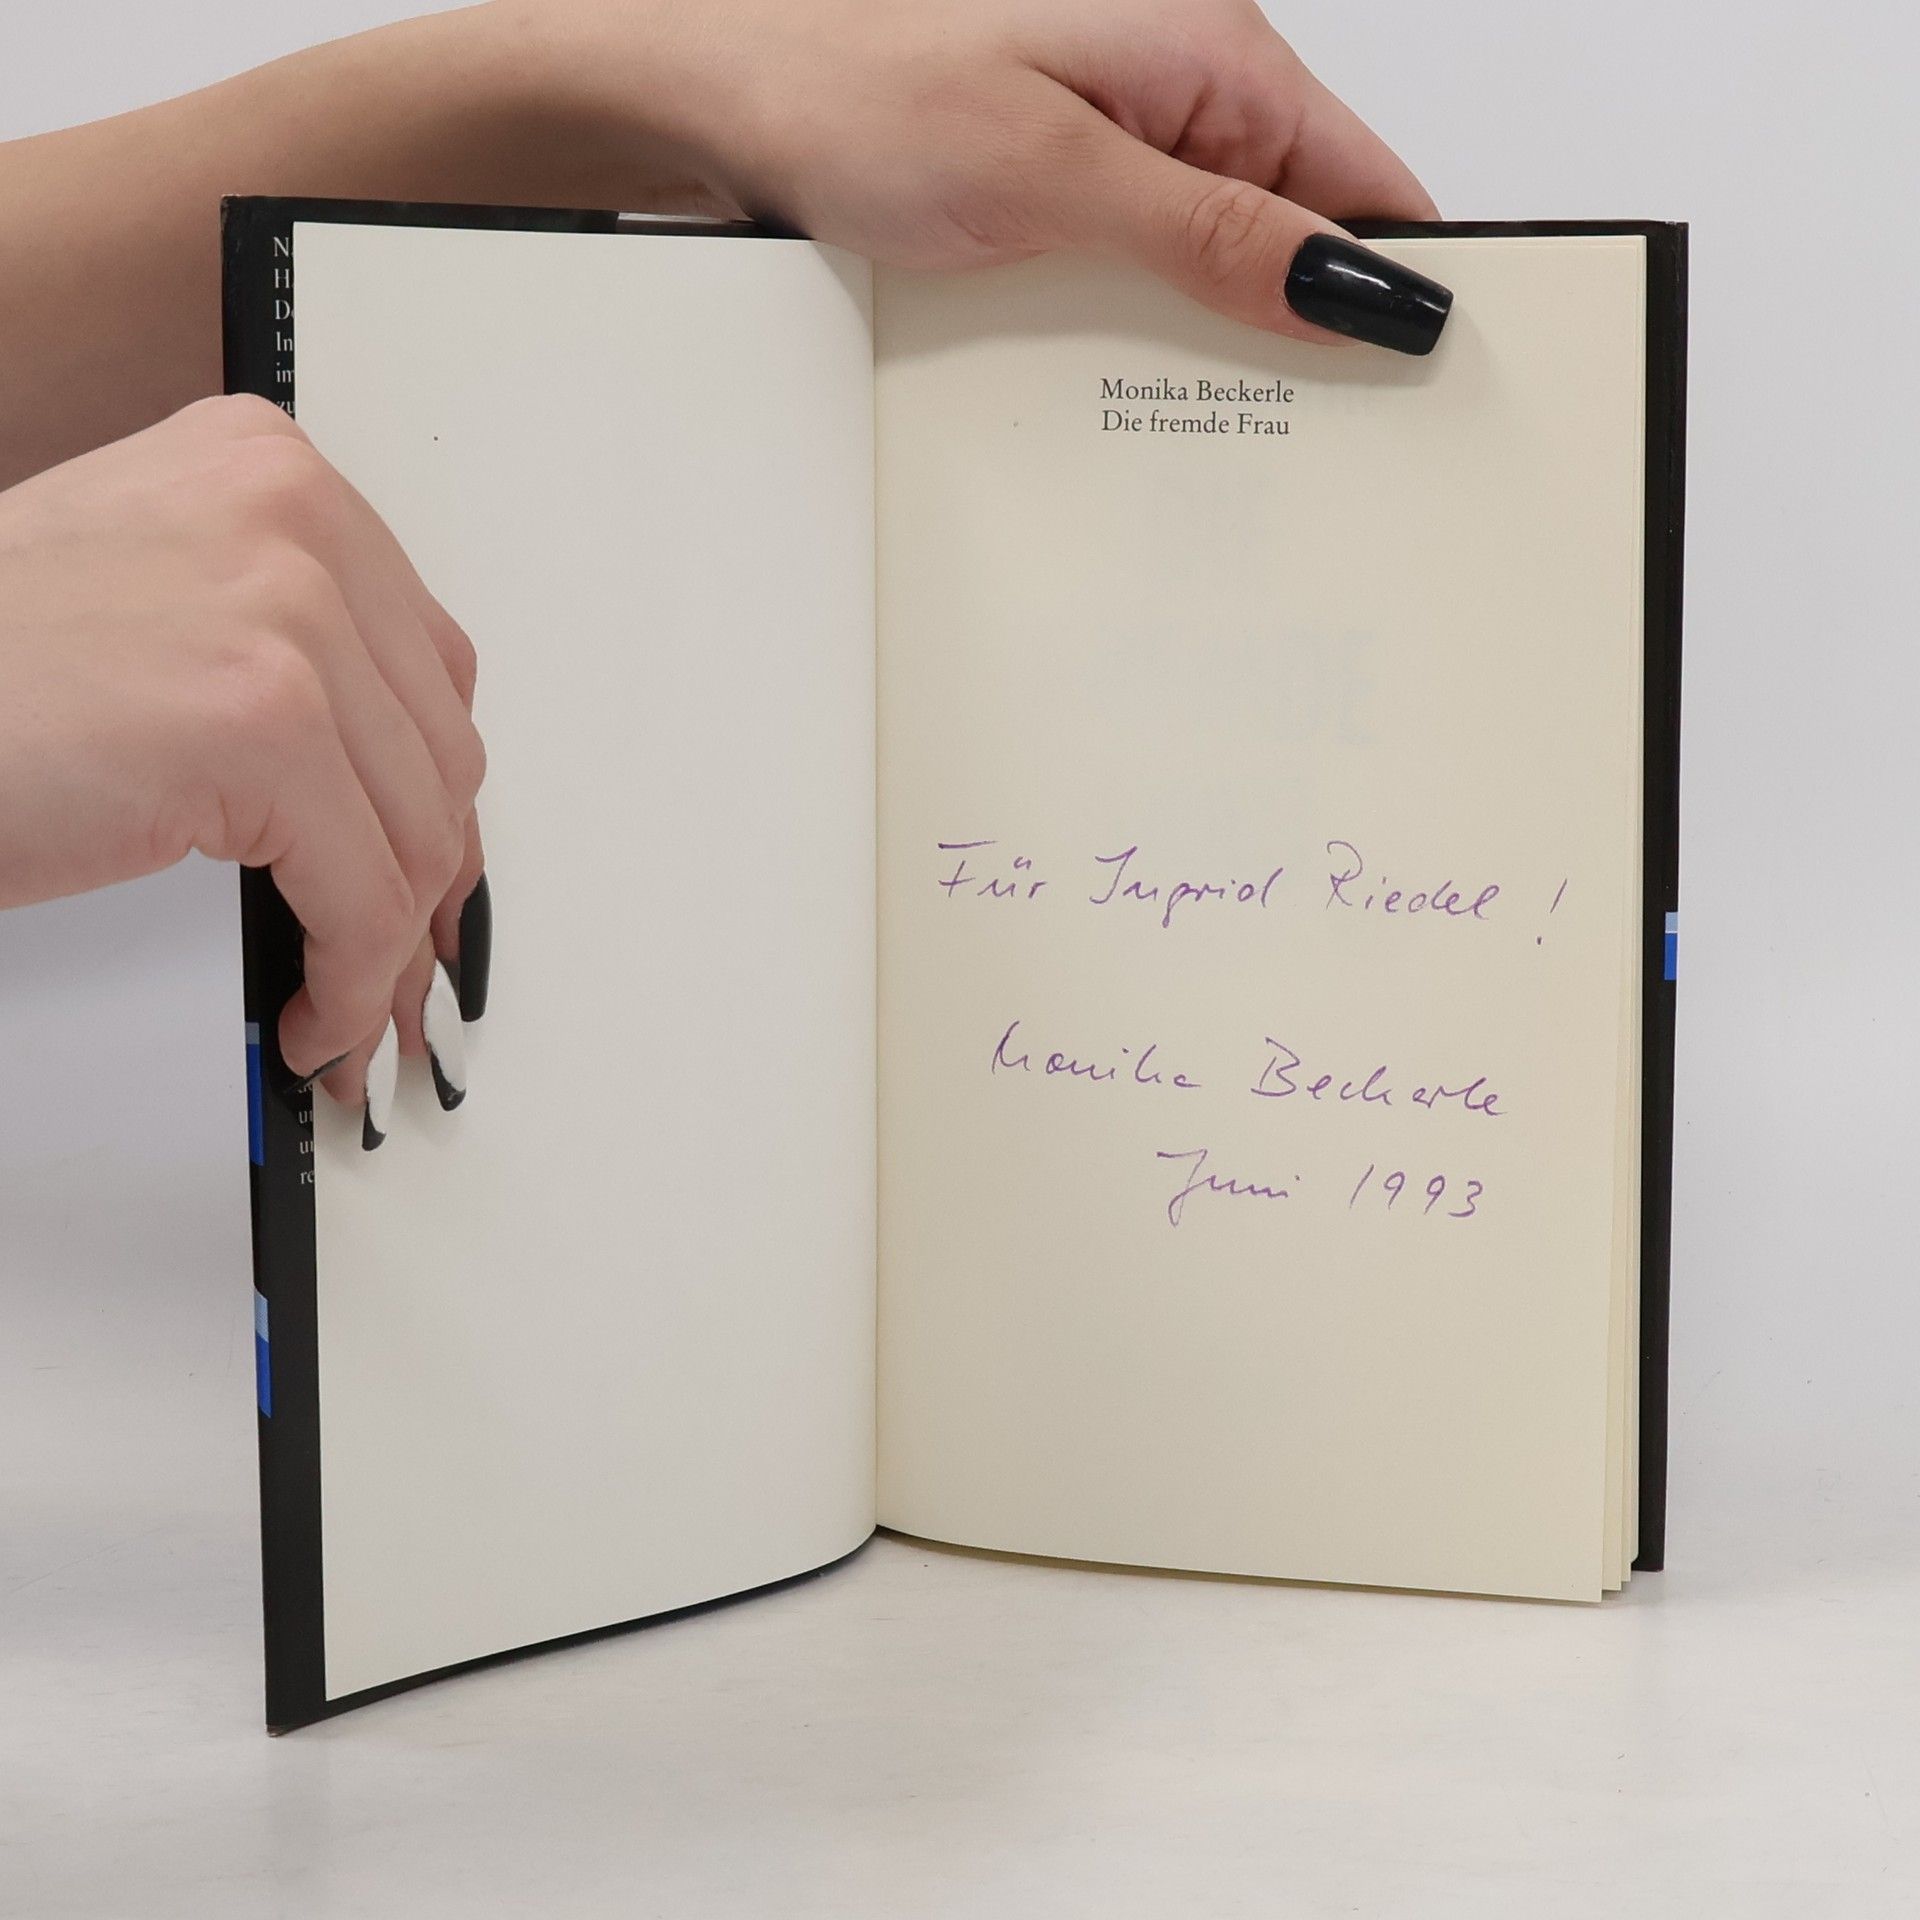 Monika Beckerle
Die fremde Frau
Für Ingrid Riedel !
Monika Beckerle
Juni 1993